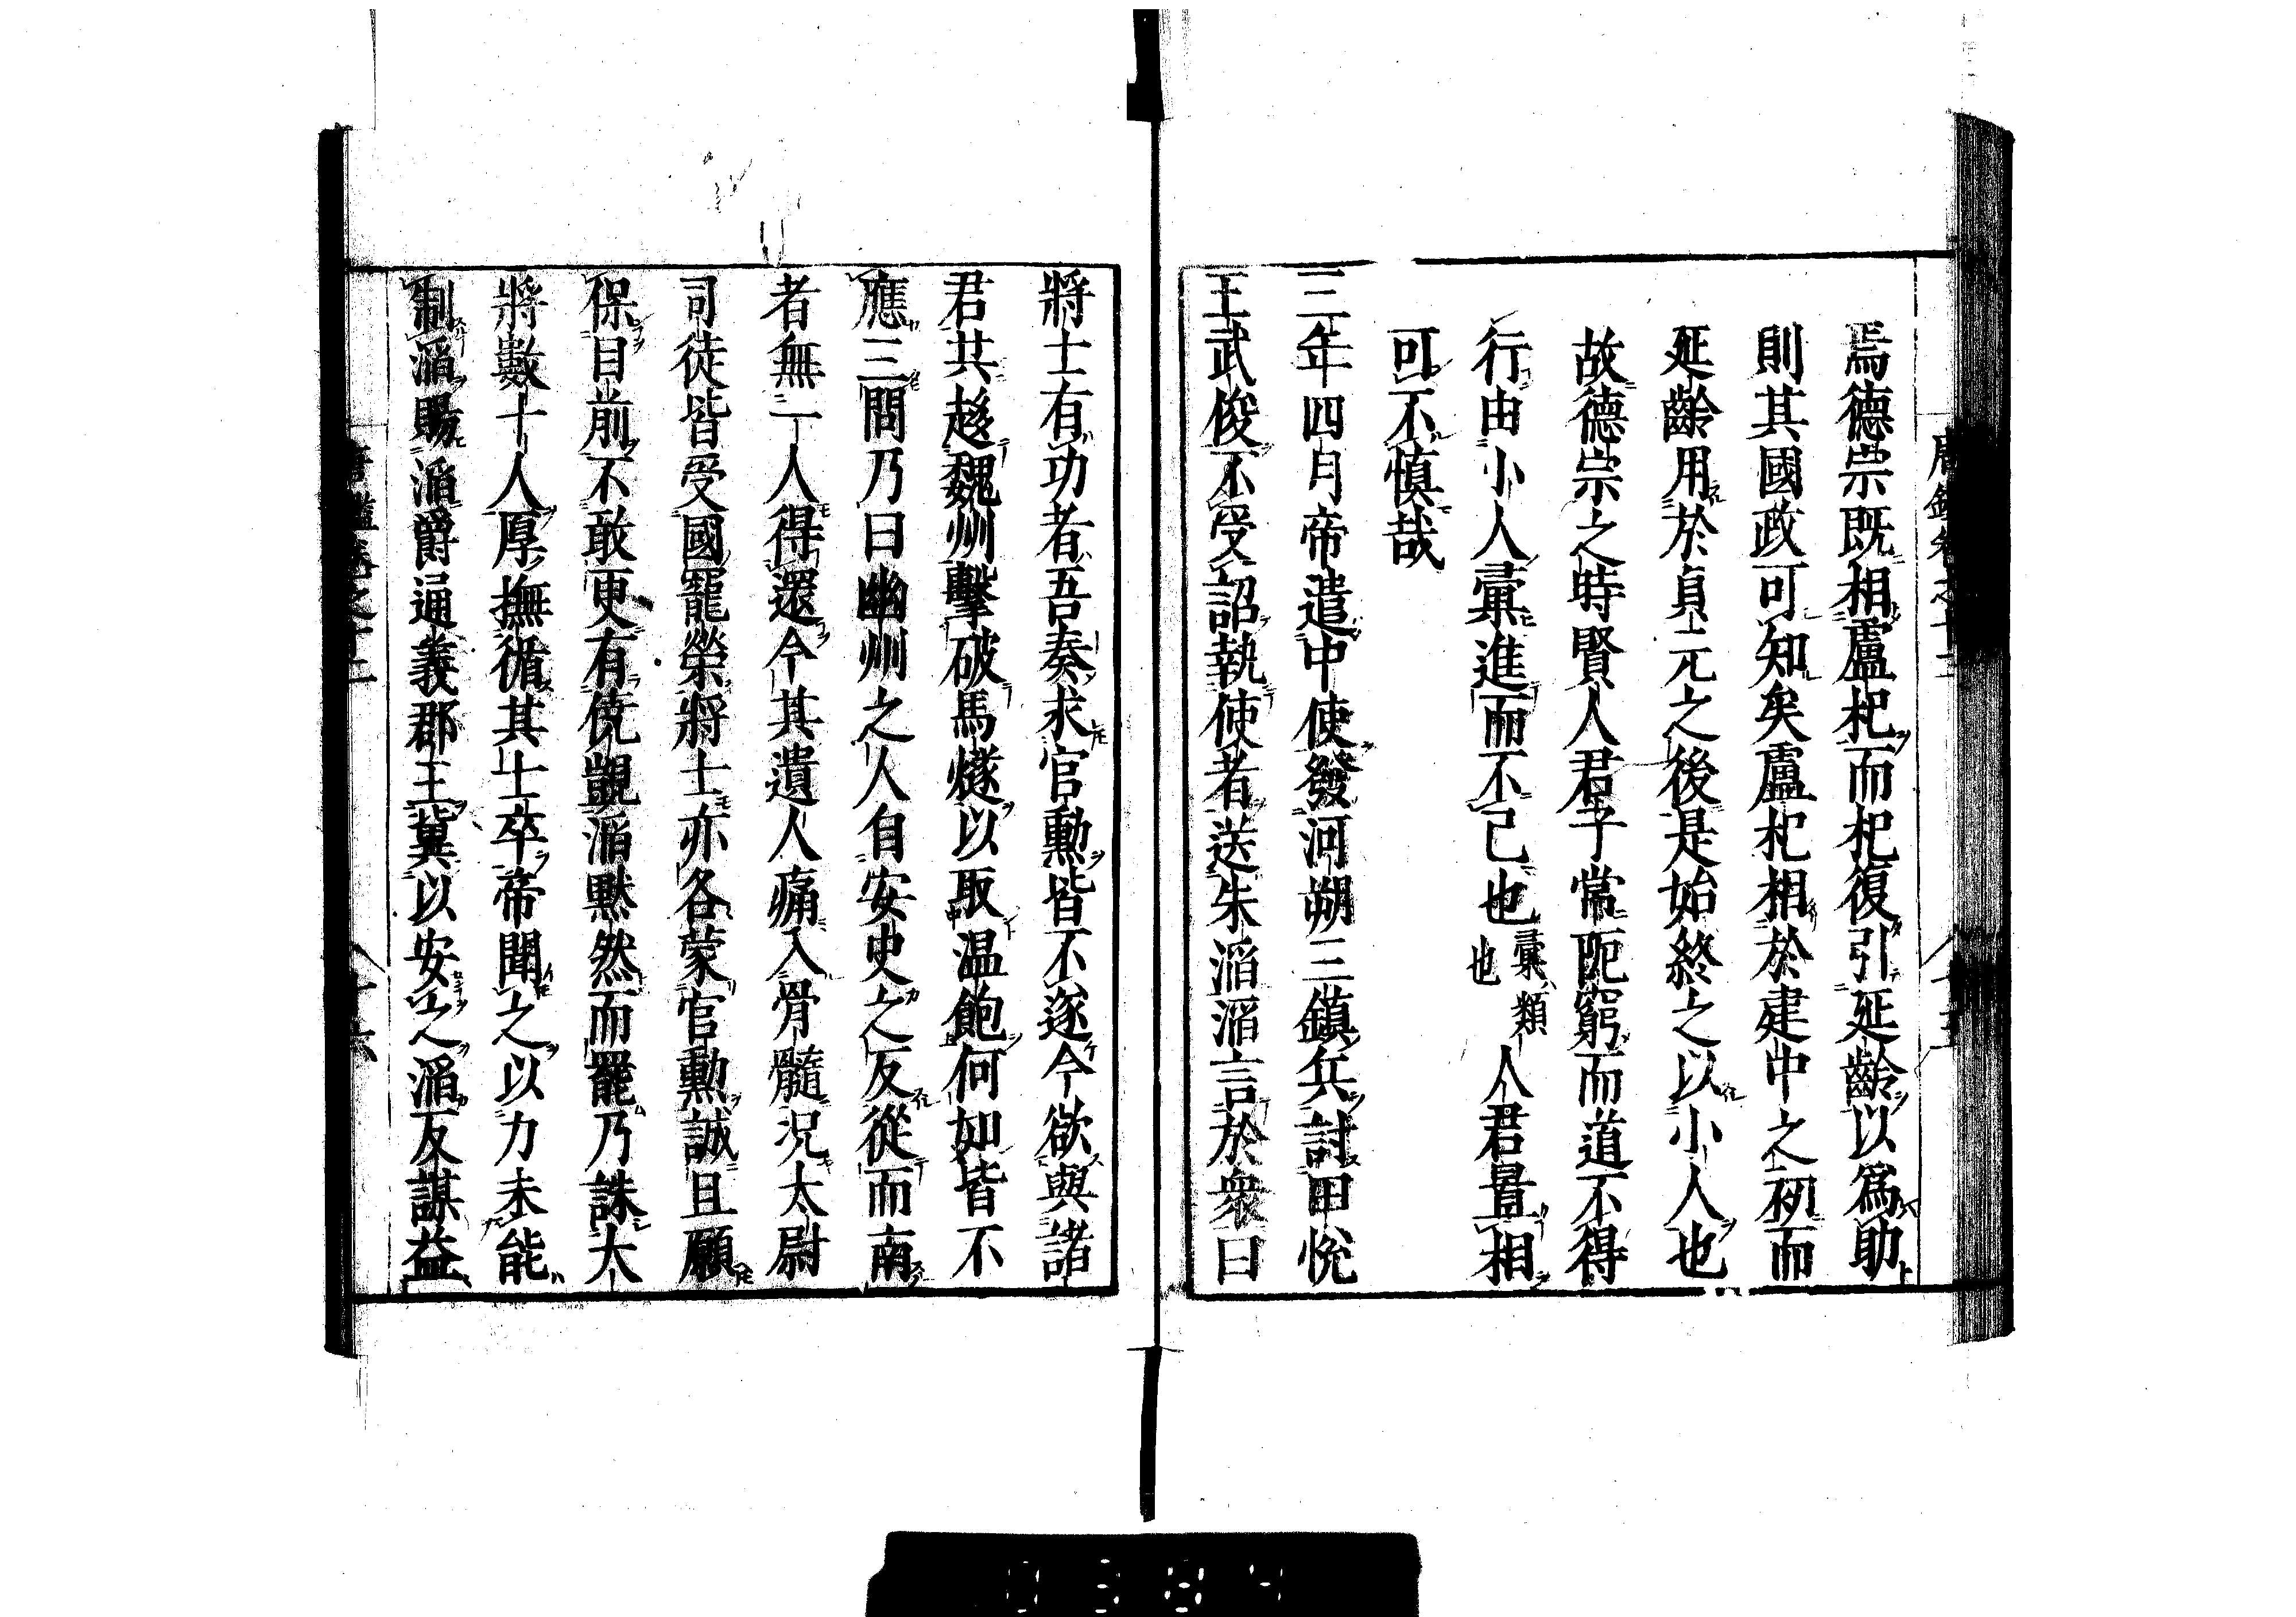 焉德宗既相盧杞而杞復引延齡以爲助
則其國政可知矣盧杞相於建中之初而
延齡用於貞元之後是始終之以小人也
故德宗之時賢人君子常阨窮而道不得
行由小人彙進而不已也彙類也人君置相
可不慎哉
三年四月帝遣中使發河朔三鎮兵討田悅
王武俊不受詔執使者送朱滔滔言於衆曰
將士有功者吾奏求官勳皆不遂今欲與諸
君共趍魏州擊破馬燧以取温飽何如皆不
應三問乃曰幽州之人自安史之反從而南
者無一人得還今其遺人痛入骨髓況太尉
司徒皆受國寵榮將士亦各蒙官勳誠且願
保目前不敢更有僥覬滔黙然而罷乃誅大
將數十人厚撫循其士卒帝聞之以力未能
制滔賜滔爵通義郡王冀以安之滔反謀益